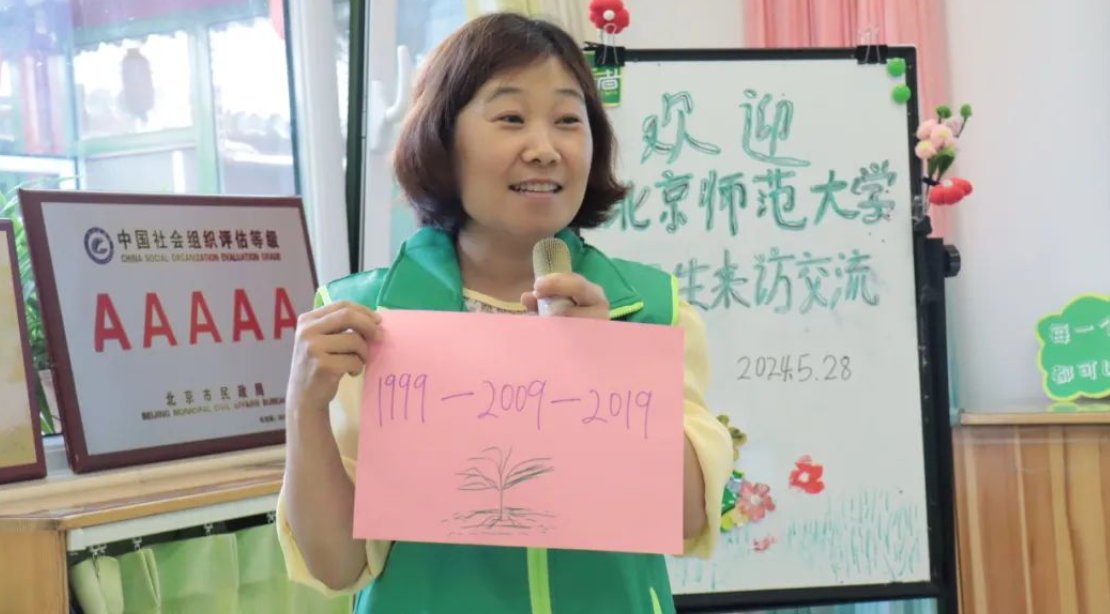 中国社会组织评估等级
CHINA SOCIAL ORGANIZATION EVALUATION GRADE
AAAAA
北京市民政局
BEIJING MUNICIPAL CIVIL AFFAIRS BUREAU
尚
欢迎
北京师范大学
生来访交流
2024.5.28
1999-2009-2019